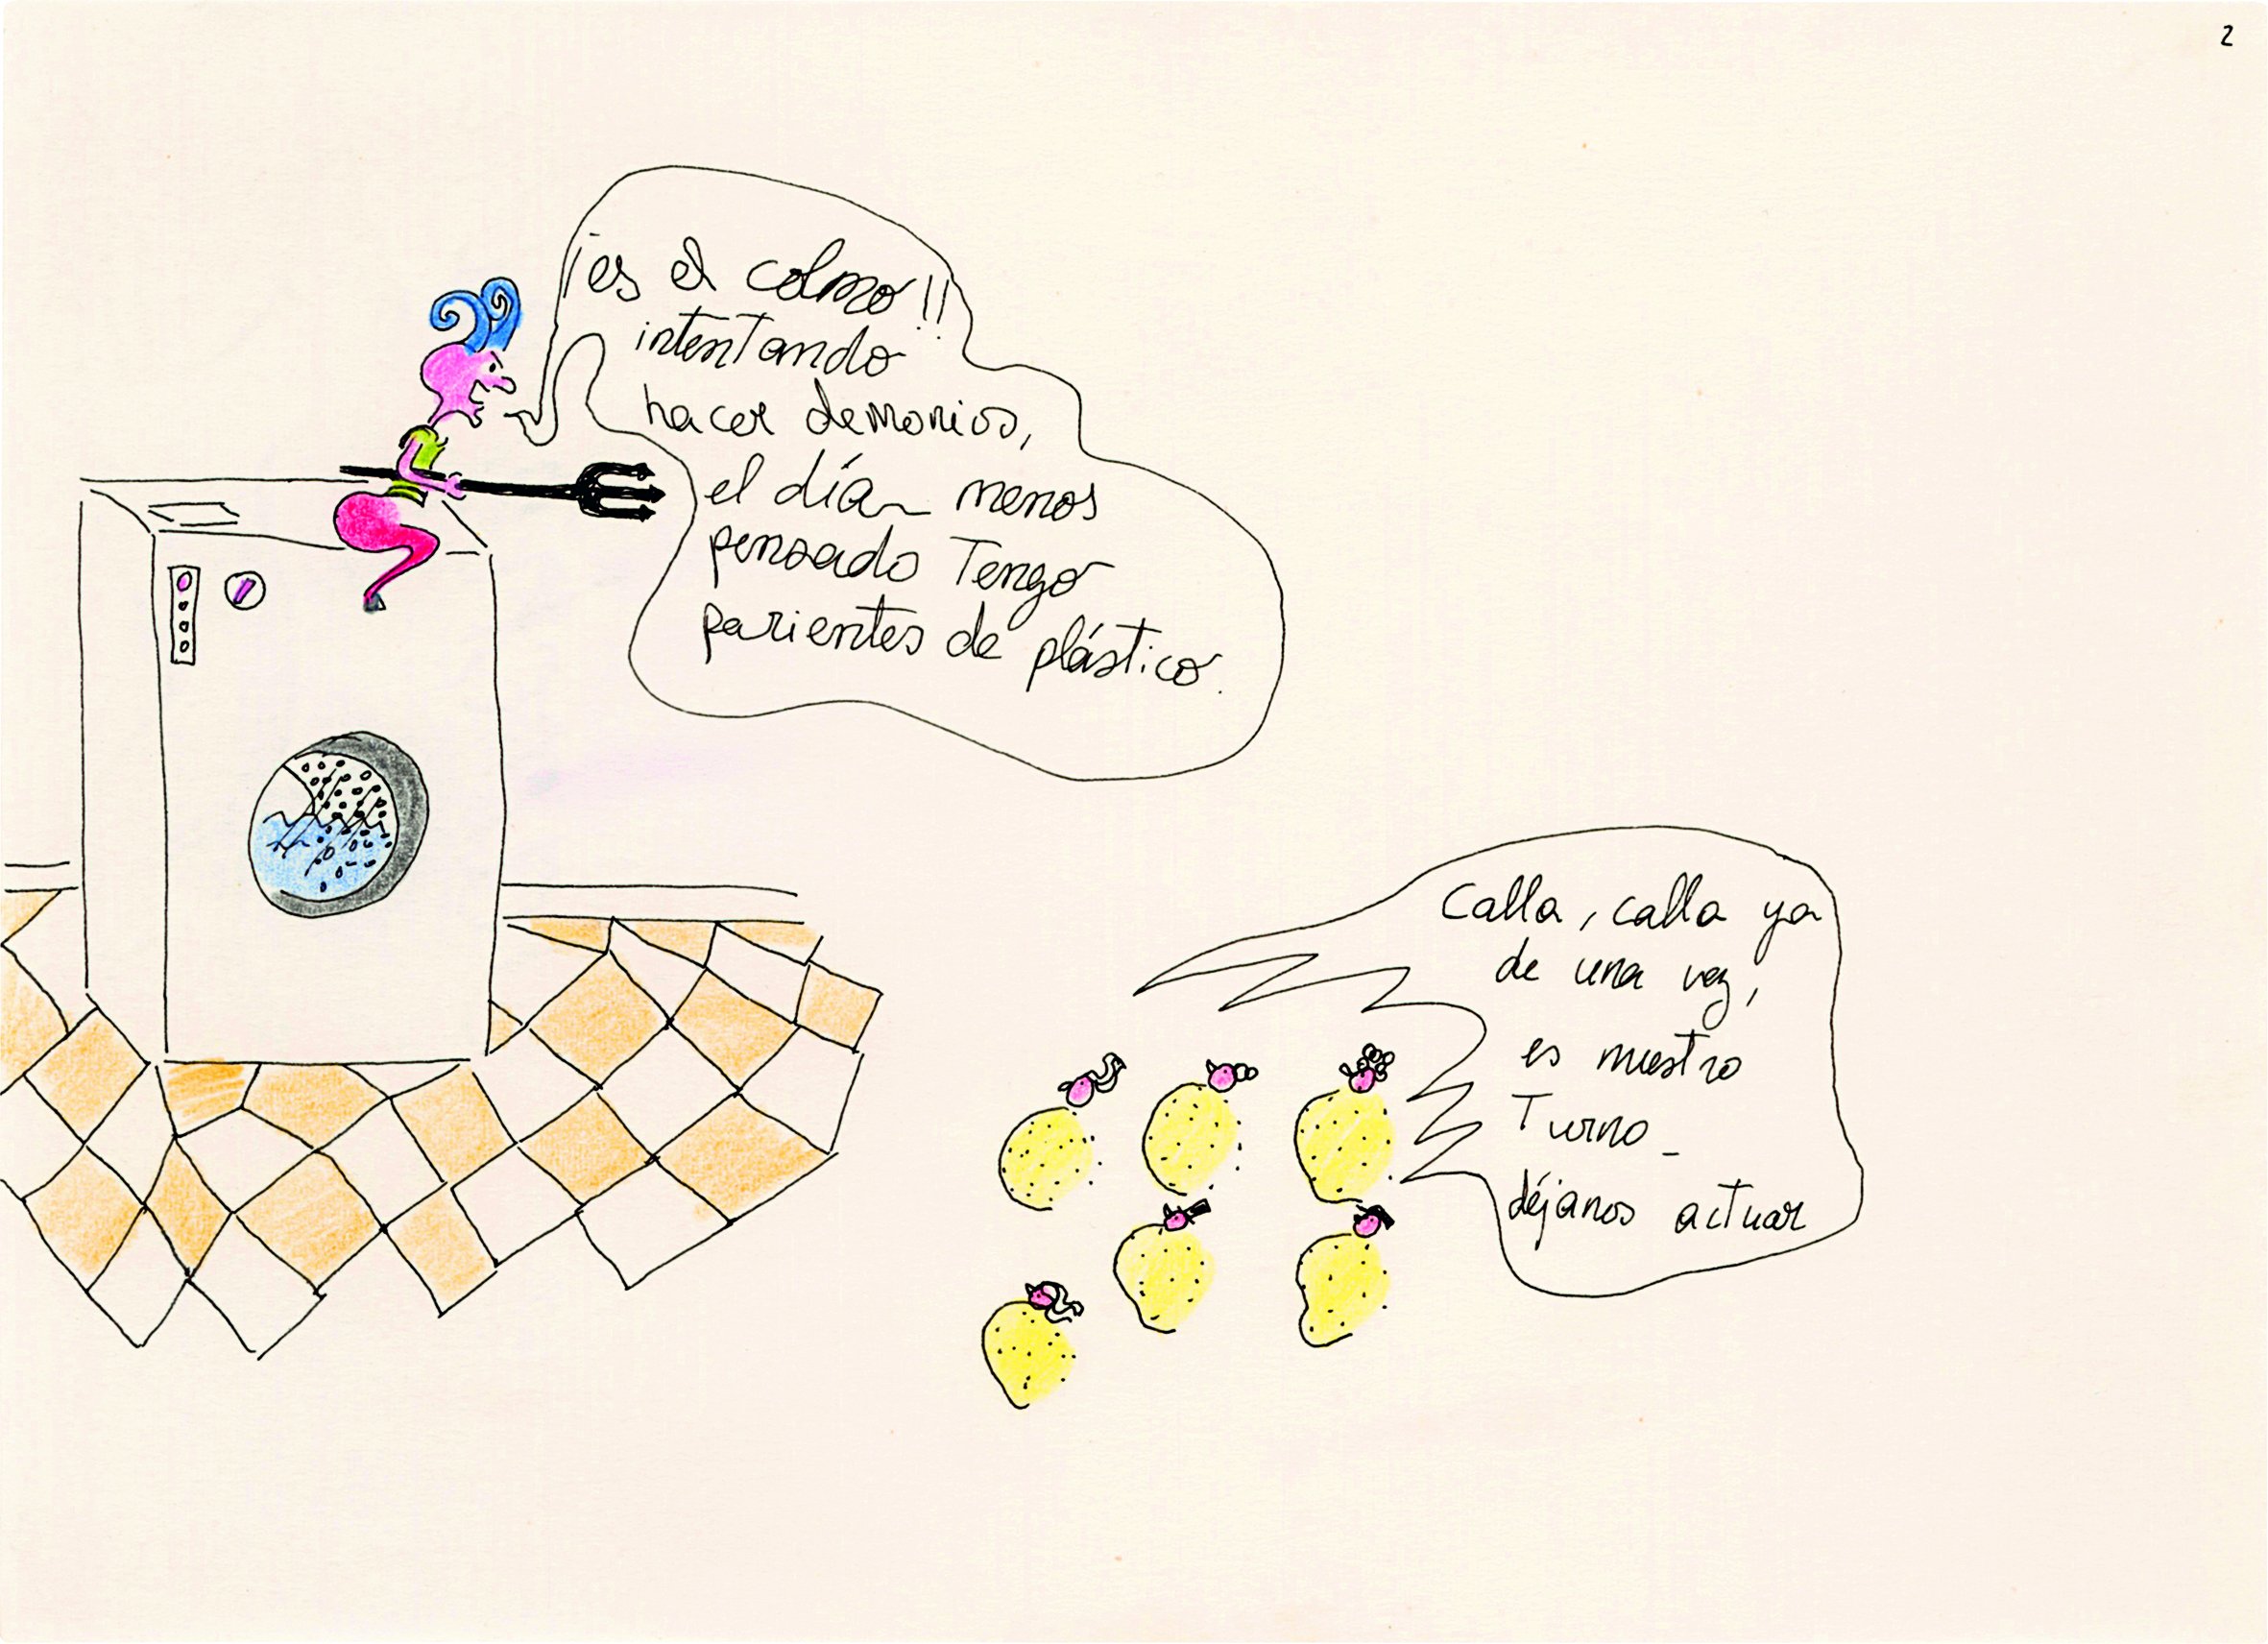 2
¡es el colmo!!
intentando
hacer demonios,
el día menos
pensado Tengo
parientes de plástico.
Calla, calla ya
de una vez,
es nuestro
Turno_
déjanos actuar